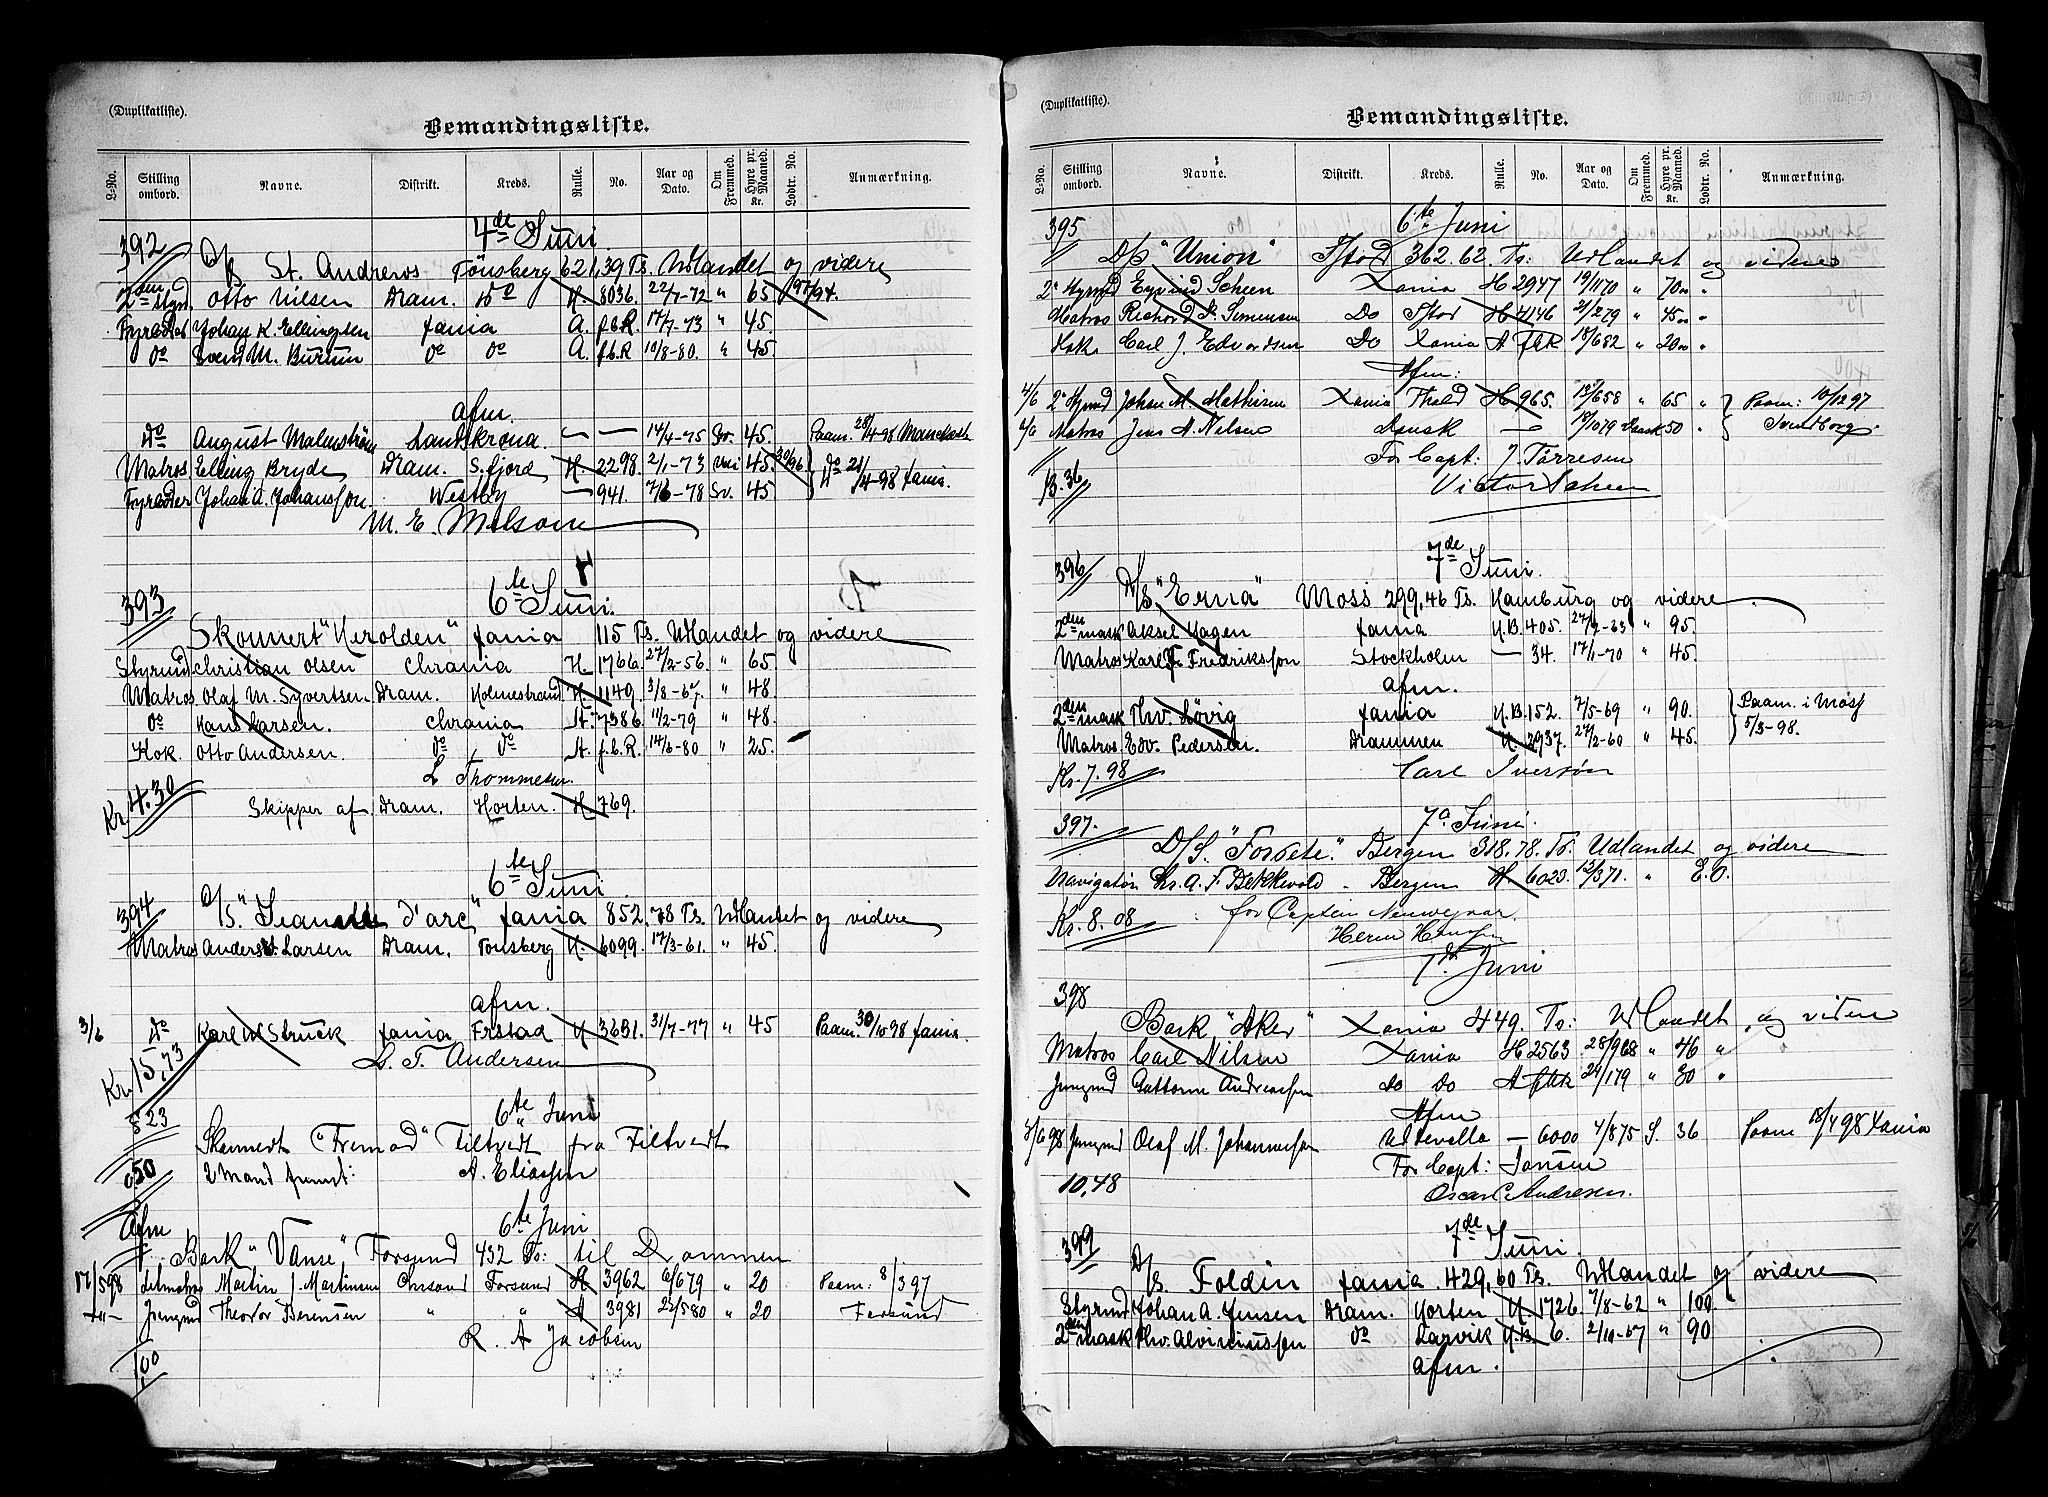 (Duplikatliste).
Bemandingsliste.
L-No. Stilling ombord. Navne. Distrikt. Kreds. Rulle. No. Aar og Dato. Om Fremmed. Hyre pr. Maaned. Kr. Lodtr. No. Anmærkning.
4de Juni.
392
D/S St. Andrews Tönsberg 621,39 Ts. Udlandet og videre
2den Styrm Otto Nilsen Dram. do H. 8036. 22/7-72 " 65 97/94.
Fyrbøder Johan K. Ellingsen Xania A. f.b.R 17/7-73 " 45.
do Svend M. do do A. f.b.R 10/8-80. " 45.
afm.
do August Malmström Landskrona. — — 14/4-75 Sv. 45. Paam. 28/4-98
Matros. Elling Bryde Dram. S.fjord H. 2298. 2/1-73 45. 30/96 do 21/4-98 Xania.
Fyrbøder Johan A. Johansson. Westby — 941. 7/6-78 Sv. 45
M. E. Melsom
393
6te Juni.
Skonnert "Herolden" Xania 115 Ts. Udlandet og videre
Styrmd Christian Olsen Chrania H. 1766. 27/2-56. " 65
Matros Olaf M. Syvertsen Dram. Holmestrand H. 1149. 3/8-67. " 48.
do Hans Larsen. Chrania A. 7386. 11/2-79 " 48.
Kok. Otto Andersen. do do A. f.b.R. 14/6-80 " 25.
L Thommesen
Kr 4.30
Skipper af Dram. Horten. H. 769.
6te Juni
394
D/S "Jeanette d'arc" Xania 852,78 Ts. Udlandet og videre
Matros Anders Larsen Dram. Tonsberg H. 6099. 17/3-61. " 45.
afm.
3/6 do Karl W Struck Xania Frstad H 3631. 31/7-77 " 45 Paam. 30/10 98 Xania.
L. T. Andersen
Kr. 15,73
6te Juni
823
Skonnert "Fremad" Tiltvedt fra Filtvedt
0,50 2 Mand fremst: A. Eliassen
Afm 6te Juni
Bark "Vanse" Farsund 432 Ts: til Drammen
17/5 98 Letmatros Martin J. Martinsen Chrsand Farsund A 3962 6/6 79 " 20 Paam: 8/3 97
—"— Jungmd Theodor Berensen " " A 3981 23/5 80 " 20 Farsund
R. A Jacobsen
1,00
(Duplikatliste).
Bemandingsliste.
L-No. Stilling ombord. Navne. Distrikt. Kreds. Rulle. No. Aar og Dato. Om Fremmed. Hyre pr. Maaned. Kr. Lodtr. No. Anmærkning.
395
6te Juni
D/S "Union" Fstad 362.62. Ts: Udlandet og videre
2. Styrmd Eyvind Scheen Xania H 2947 19/11 70 " 70.00 "
Matros Richard D. Simensen Do Fstad H 4146 21/2 79 " 45.00 "
Kok Carl J. Edvardsen Do Xania A fbR 18/6 82 " 20.00 "
Afm:
4/6 2. Styrmd Johan M. Mathisen Xania Thald H 965. 12/6 58 " 65 " Paam: 10/12 97
6/6 Matros Jens A. Nilsen Dansk — 18/10 79 Dansk 50 " Svendborg
For Capt: J. Tørresen
13.36 Victor Scheen
396
7de Juni.
D/S "Erna" Moss 299,46 Ts. Hamburg og videre.
2den mask Aksel Hagen Xania H.B. 405. 27/2-63 " 95.
Matros Karl F. Fredriksson Stockholm — 34. 17/1-70 " 45.
afm.
2den mask Thv. Løvig Xania H.B. 152. 7/5-69 " 90. Paam. i Moss
Matros Edv. Pedersen. Drammen H. 2937. 27/2-60 " 45. 5/3-98.
Kr. 7.98 Carl Iversøn
397.
7de Juni.
D/S. "Forsete." Bergen 318.78. Ts. Udlandet og videre
Navigatør Kr. A. F. Bekkevold. Bergen H. 6023. 12/3 71. " E.O.
Kr. 8.08 for Captein
7de Juni
398
Bark "Aker" Xania 449. Ts: Udlandet og videre
Matros Carl Nilsen Xania H 2563 28/9 68 " 46 "
Jungmd Guttorm Andreassen Do Do A fbR 24/1 79 " 30 "
Afm
7/6 98 Jungmd Olaf M. Johannesson Udevalla — 6000 4/8 75 S. 36 Paam 18/4 98 Xania
For Capt: Jansen
10,48 Oscar C. Andresen.
399
7de Juni.
D/S. Foldin Xania. 429,60 Ts. Udlandet og videre
Styrmd Johan A. Jensen Dram. Horten H. 1726. 7/8-62 " 100
2den mask Thv. Alviniussen do Larvik H.B. 6. 2/10-67 " 90
afm.